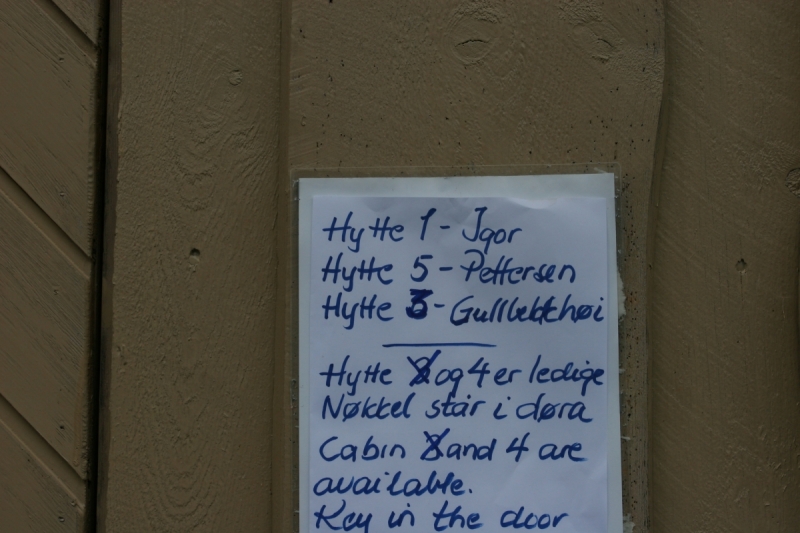 Hytte 1 - Igor
Hytte 5 - Pettersen
Hytte 3 -
Hytte og 4 er ledige
Nøkkel står i døra
Cabin and 4 are
available.
Key in the door